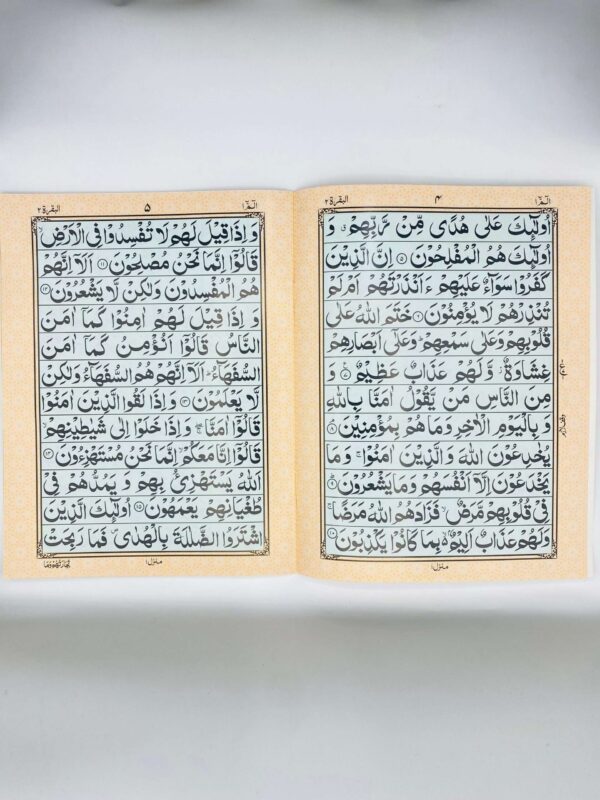 البقرة ٢
٤
الٓمّٓ ١
اُولٰٓئِكَ عَلٰى هُدًى مِّنْ رَّبِّهِمْ ۗ وَ
اُولٰٓئِكَ هُمُ الْمُفْلِحُوْنَ ۝٥ اِنَّ الَّذِيْنَ
كَفَرُوْا سَوَآءٌ عَلَيْهِمْ ءَاَنْذَرْتَهُمْ اَمْ لَمْ
تُنْذِرْهُمْ لَا يُؤْمِنُوْنَ ۝٦ خَتَمَ اللّٰهُ عَلٰى
قُلُوْبِهِمْ وَعَلٰى سَمْعِهِمْ ؕ وَعَلٰٓى اَبْصَارِهِمْ
غِشَاوَةٌ ؗ وَّلَهُمْ عَذَابٌ عَظِيْمٌ ۝٧ وَ
مِنَ النَّاسِ مَنْ يَّقُوْلُ اٰمَنَّا بِاللّٰهِ
وَ بِالْيَوْمِ الْاٰخِرِ وَمَا هُمْ بِمُؤْمِنِيْنَ ۝٨
يُخٰدِعُوْنَ اللّٰهَ وَ الَّذِيْنَ اٰمَنُوْا ۚ وَ مَا
يَخْدَعُوْنَ اِلَّآ اَنْفُسَهُمْ وَمَا يَشْعُرُوْنَ ۝٩
فِيْ قُلُوْبِهِمْ مَّرَضٌ ۙ فَزَادَهُمُ اللّٰهُ مَرَضًا ۚ
وَلَهُمْ عَذَابٌ اَلِيْمٌۢ ۙ بِمَا كَانُوْا يَكْذِبُوْنَ ۝١٠
منزل ١
البقرة ٢
٥
الٓمّٓ ١
وَ اِذَا قِيْلَ لَهُمْ لَا تُفْسِدُوْا فِى الْاَرْضِ ۙ
قَالُوْٓا اِنَّمَا نَحْنُ مُصْلِحُوْنَ ۝١١ اَلَآ اِنَّهُمْ
هُمُ الْمُفْسِدُوْنَ وَلٰكِنْ لَّا يَشْعُرُوْنَ ۝١٢
وَ اِذَا قِيْلَ لَهُمْ اٰمِنُوْا كَمَآ اٰمَنَ
النَّاسُ قَالُوْٓا اَنُؤْمِنُ كَمَآ اٰمَنَ
السُّفَهَآءُ ؕ اَلَآ اِنَّهُمْ هُمُ السُّفَهَآءُ وَلٰكِنْ
لَّا يَعْلَمُوْنَ ۝١٣ وَ اِذَا لَقُوا الَّذِيْنَ اٰمَنُوْا
قَالُوْٓا اٰمَنَّا ۖۚ وَ اِذَا خَلَوْا اِلٰى شَيٰطِيْنِهِمْ ۙ
قَالُوْٓا اِنَّا مَعَكُمْ ۙ اِنَّمَا نَحْنُ مُسْتَهْزِءُوْنَ ۝١٤
اَللّٰهُ يَسْتَهْزِئُ بِهِمْ وَ يَمُدُّهُمْ فِيْ
طُغْيَانِهِمْ يَعْمَهُوْنَ ۝١٥ اُولٰٓئِكَ الَّذِيْنَ
اشْتَرَوُا الضَّلٰلَةَ بِالْهُدٰى ۪ فَمَا رَبِحَتْ
منزل ١